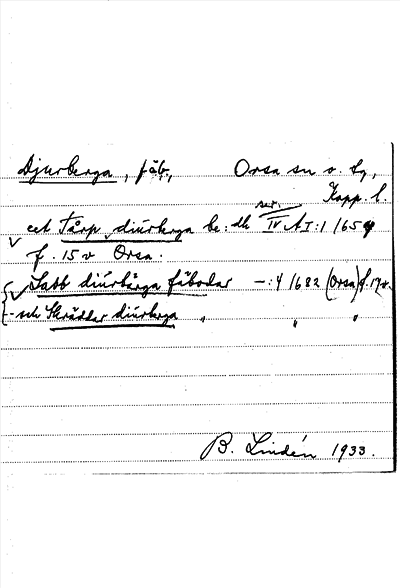 Djurberga, fäb., Orsa sn o. tg,
Kopp. l.
ett Tårp diurberga be: dh ser. IV A I:1 1659
f. 15 v Orsa.
Sabb diurbärga fäbodar —:4 1682 (Orsa) f. 17 v.
- och Skräddar diurberga " " "
B. Lindén 1933.